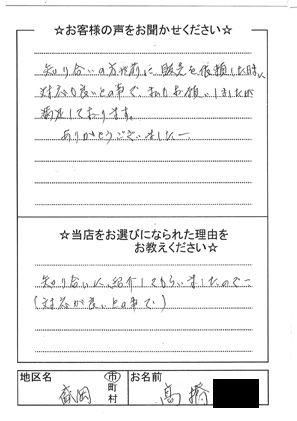 ☆お客様の声をお聞かせください☆
知り合いの方が前に販売を依頼した時に
対応も良いとの事で、私もお願いしましたが
満足しております。
ありがとうございました。
☆当店をお選びになられた理由を
お教えください☆
知り合いに、紹介してもらいましたので
(対応が良いとの事で)
地区名 盛岡 市 町 村 お名前 高橋